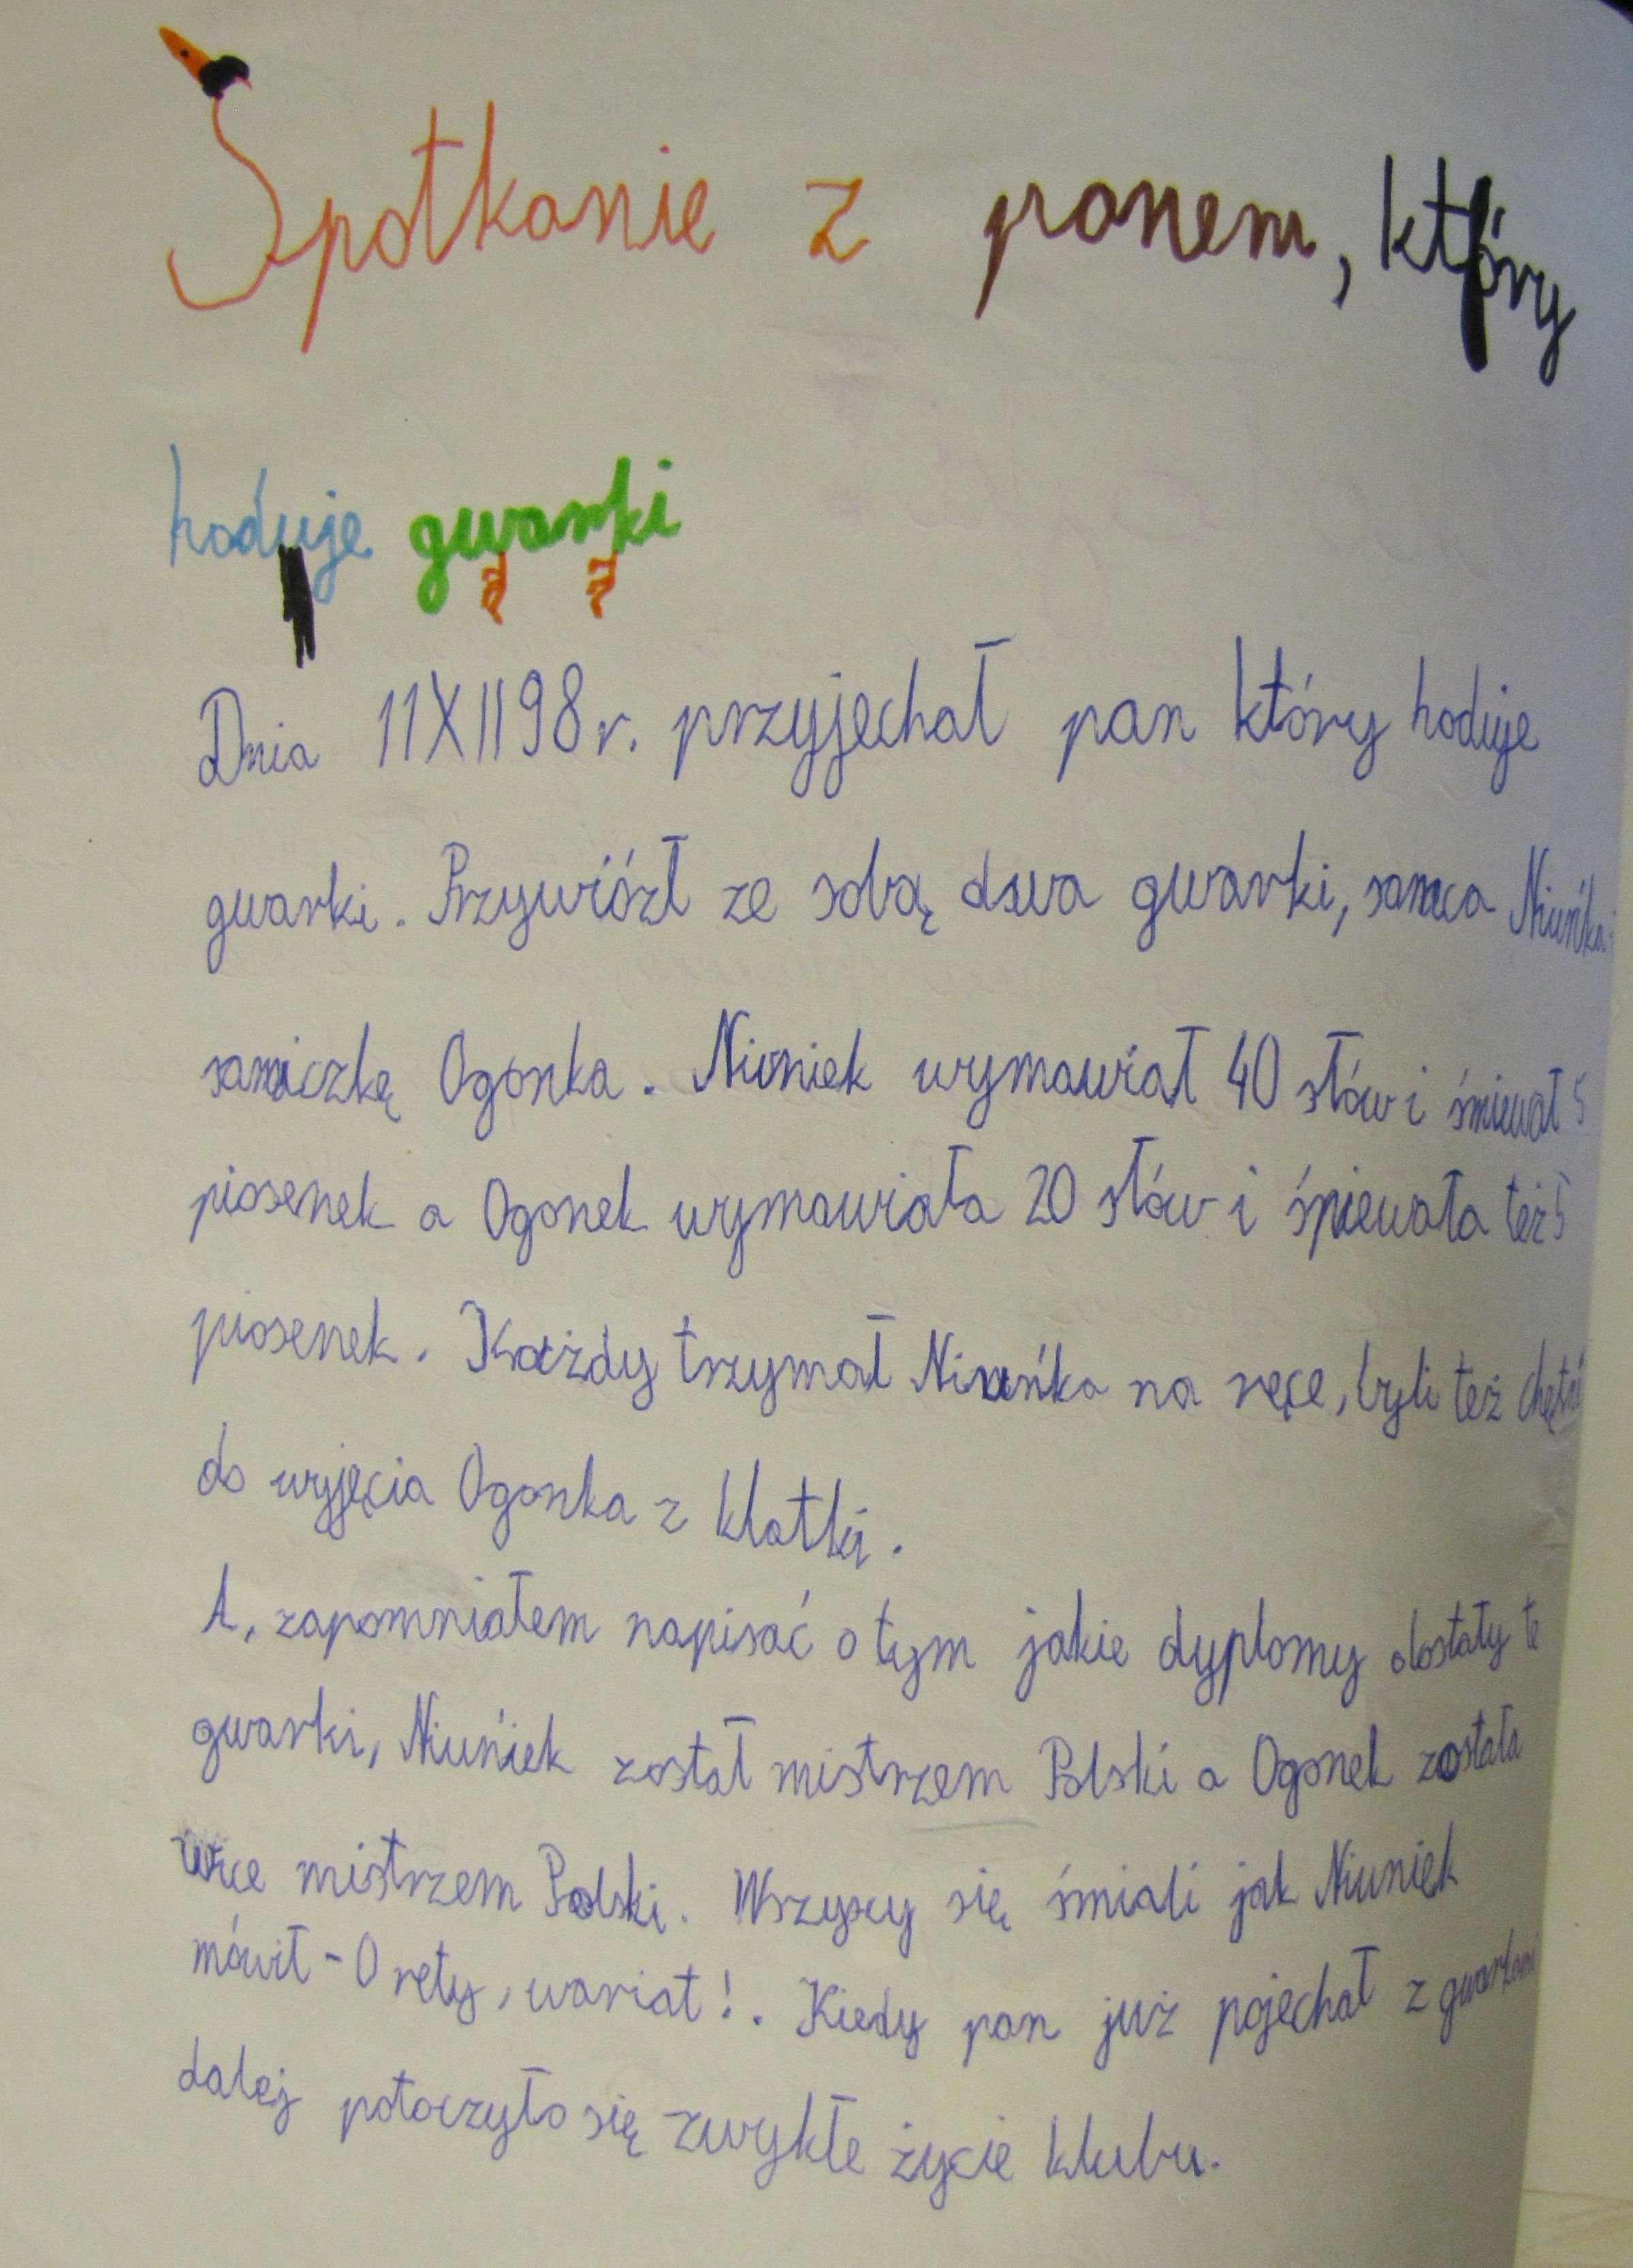 Spotkanie z panem, który
hoduje gwarki
Dnia 11XII98r. przyjechał pan który hoduje
gwarki. Przywiózł ze sobą dwa gwarki, samca Niuńka i
samiczkę Ogonka. Niuniek wymawiał 40 słów i śmiewał 5
piosenek a Ogonek wymawiała 20 słów i śpiewała też 5
piosenek. Każdy trzymał Niuńka na ręce, byli też chętni
do wyjęcia Ogonka z klatki.
A, zapomniałem napisać o tym jakie dyplomy dostały te
gwarki, Niuńiek został mistrzem Polski a Ogonek została
wice mistrzem Polski. Wszyscy się śmiali jak Niuniek
mówił - O rety, wariat!. Kiedy pan już pojechał z gwarkami
dalej potoczyło się zwykłe życie klubu.